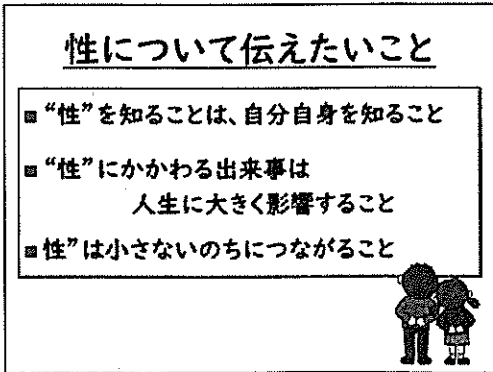 性について伝えたいこと
■ “性”を知ることは、自分自身を知ること
■ “性”にかかわる出来事は
人生に大きく影響すること
■ 性”は小さないのちにつながること